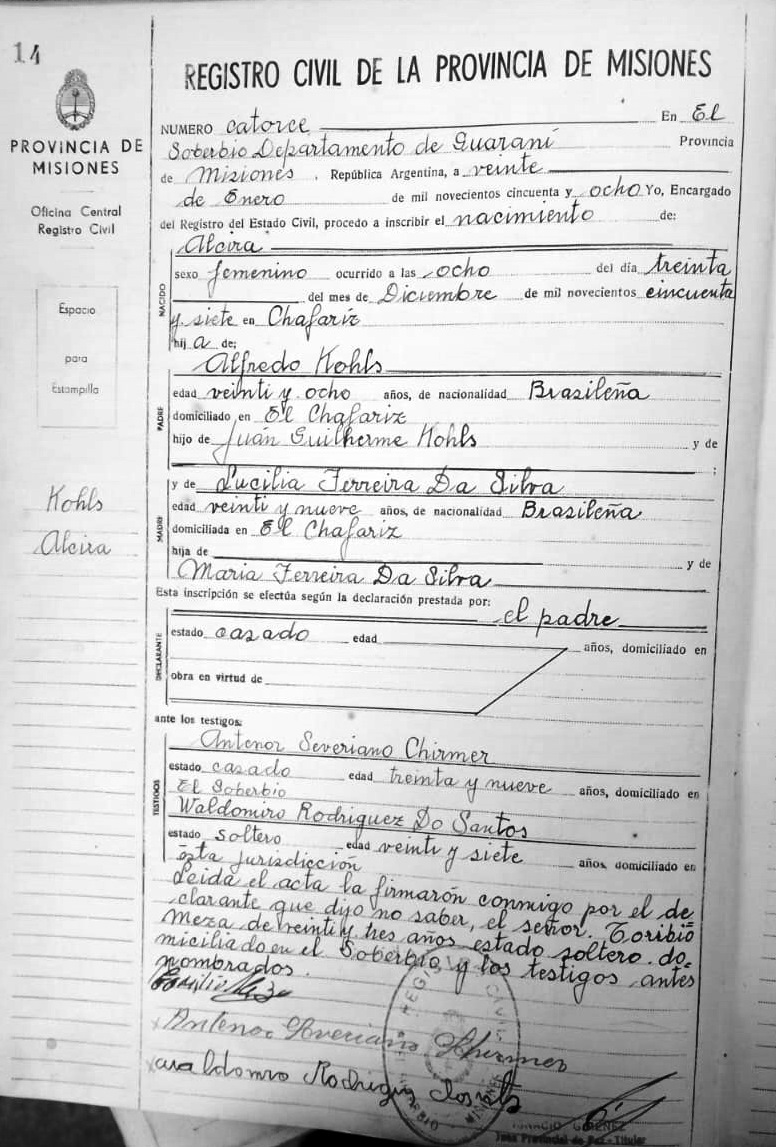 14
PROVINCIA DE
MISIONES
Oficina Central
Registro Civil
Espacio
para
Estampilla
Kohls
Alcira
REGISTRO CIVIL DE LA PROVINCIA DE MISIONES
NUMERO catorce En El
Soberbio Departamento de Guaraní Provincia
de Misiones, República Argentina, a veinte
de Enero de mil novecientos cincuenta y ocho Yo, Encargado
del Registro del Estado Civil, procedo a inscribir el nacimiento de:
NACIDO
Alcira
sexo femenino ocurrido a las ocho del día treinta
del mes de Diciembre de mil novecientos cincuenta
y siete en Chafariz
hij a de;
PADRE
Alfredo Kohls
edad veinti y ocho años, de nacionalidad Brasileña
domiciliado en El Chafariz
hijo de Juan Guilherme Kohls y de
;
MADRE
y de Lucilia Ferreira Da Silva
edad veinti y nueve años, de nacionalidad Brasileña
domiciliada en El Chafariz
hija de y de
Maria Ferreira Da Silva
Esta inscripción se efectúa según la declaración prestada por: el padre
DECLARANTE
estado casado edad años, domiciliado en
obra en virtud de
ante los testigos:
TESTIGOS
Antenor Severiano Chirmer
estado casado edad treinta y nueve años, domiciliado en
El Soberbio
Waldomiro Rodriguez Do Santos
estado soltero edad veinti y siete años, domiciliado en
ésta jurisdicción
Leida el acta la firmarón conmigo por el de
clarante que dijo no saber, el señor. Toribio
Meza de veinti y tres años estado soltero do.
miciliado en el Soberbio y los testigos antes
nombrados.
Antenor Severiano Shirmer
REGISTRO CIVIL
SOBERBIO MISIONES
IGNACIO GIMENEZ
Juez Provincial de Paz - Titular